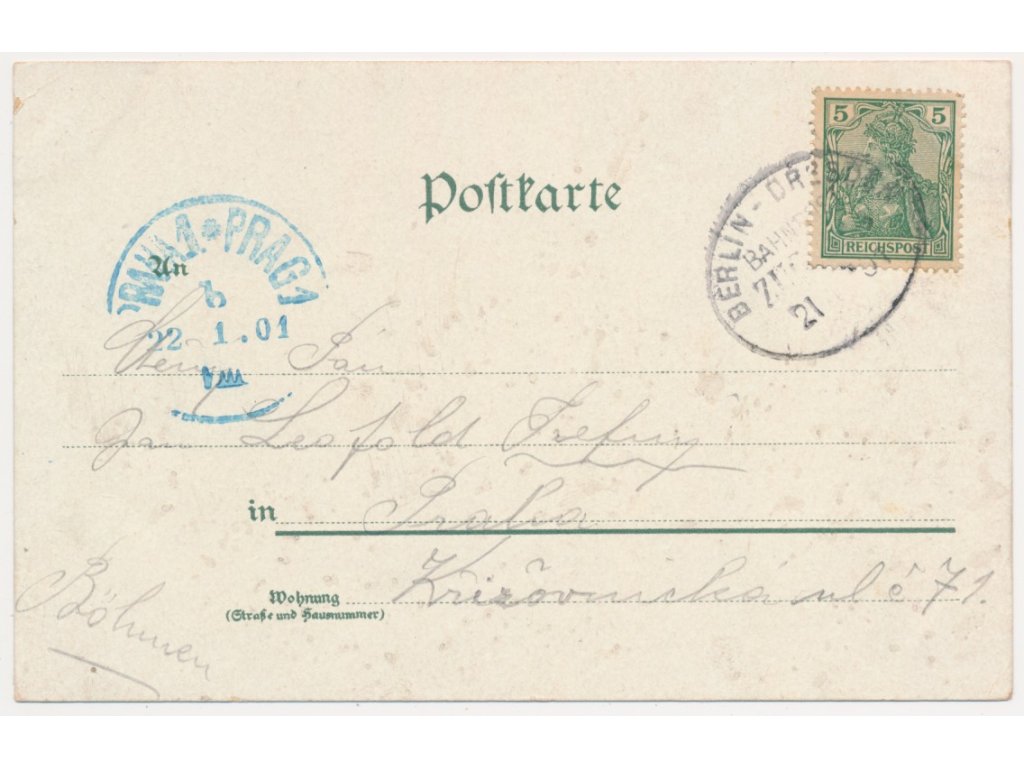 5 5
REICHSPOST
Postkarte
BERLIN - DRESDEN
BAHNP
ZUG
21
PRAHA 1 * PRAG 1
b
22 1.01
VIII
An
Pan
Jan Leopold
in Praha
Wohnung Křižovnická ul č 71.
(Straße und Hausnummer)
Böhmen